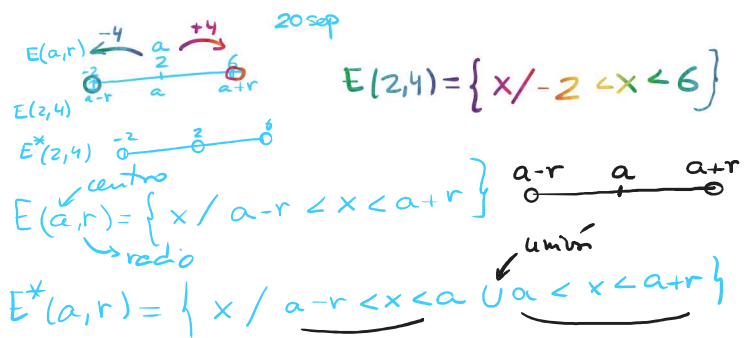 20 sep
-4 +4
E(a,r) a
-2 2 6
a-r a a+r
E(2,4)
E(2,4)={ x/-2 <x<6 }
-2 2 6
E*(2,4)
centro
E(a,r)={ x / a-r < x < a+r }
radio
a-r a a+r
unión
E*(a,r)={ x / a-r <x<a ∪ a < x < a+r }